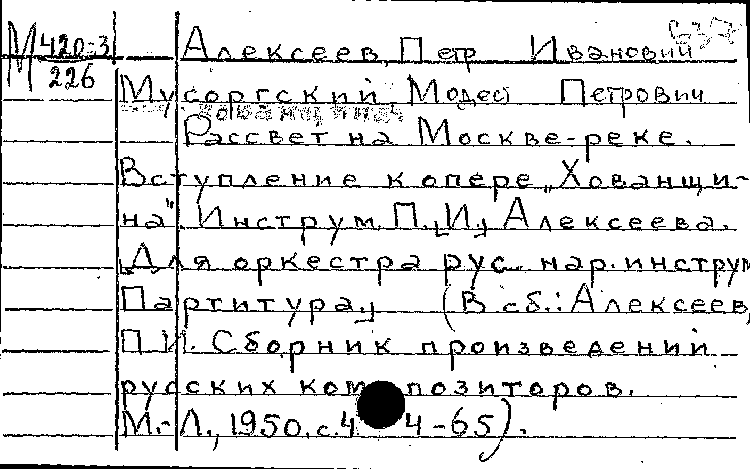 М 420-3 Алексеев, Петр Иванович
226
Мусоргский Модест Петрович
Рассвет на Москве-реке.
Вступление к опере „Хованщи-
на". Инструм. П.[И.] Алексеева.
[Для оркестра рус. нар. инструм
Партитура.] (В сб.: Алексеев,
П.И. Сборник произведений
русских композиторов.
М.-Л., 1950. с.4 4-65).